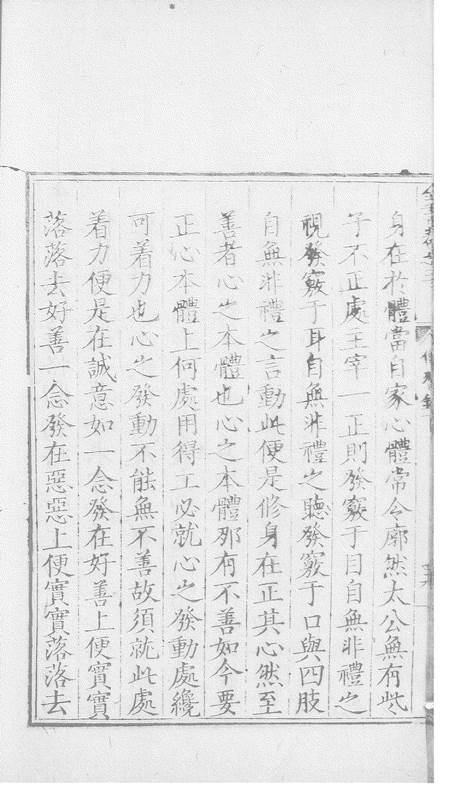 身在於體當自家心體常令廓然太公無有些
子不正處主宰一正則發竅于目自無非禮之
視發竅于耳自無非禮之聽發竅于口與四肢
自無非禮之言動此便是修身在正其心然至
善者心之本體也心之本體那有不善如今要
正心本體上何處用得工必就心之發動處纔
可着力也心之發動不能無不善故須就此處
着力便是在誠意如一念發在好善上便實實
落落去好善一念發在惡惡上便實實落落去